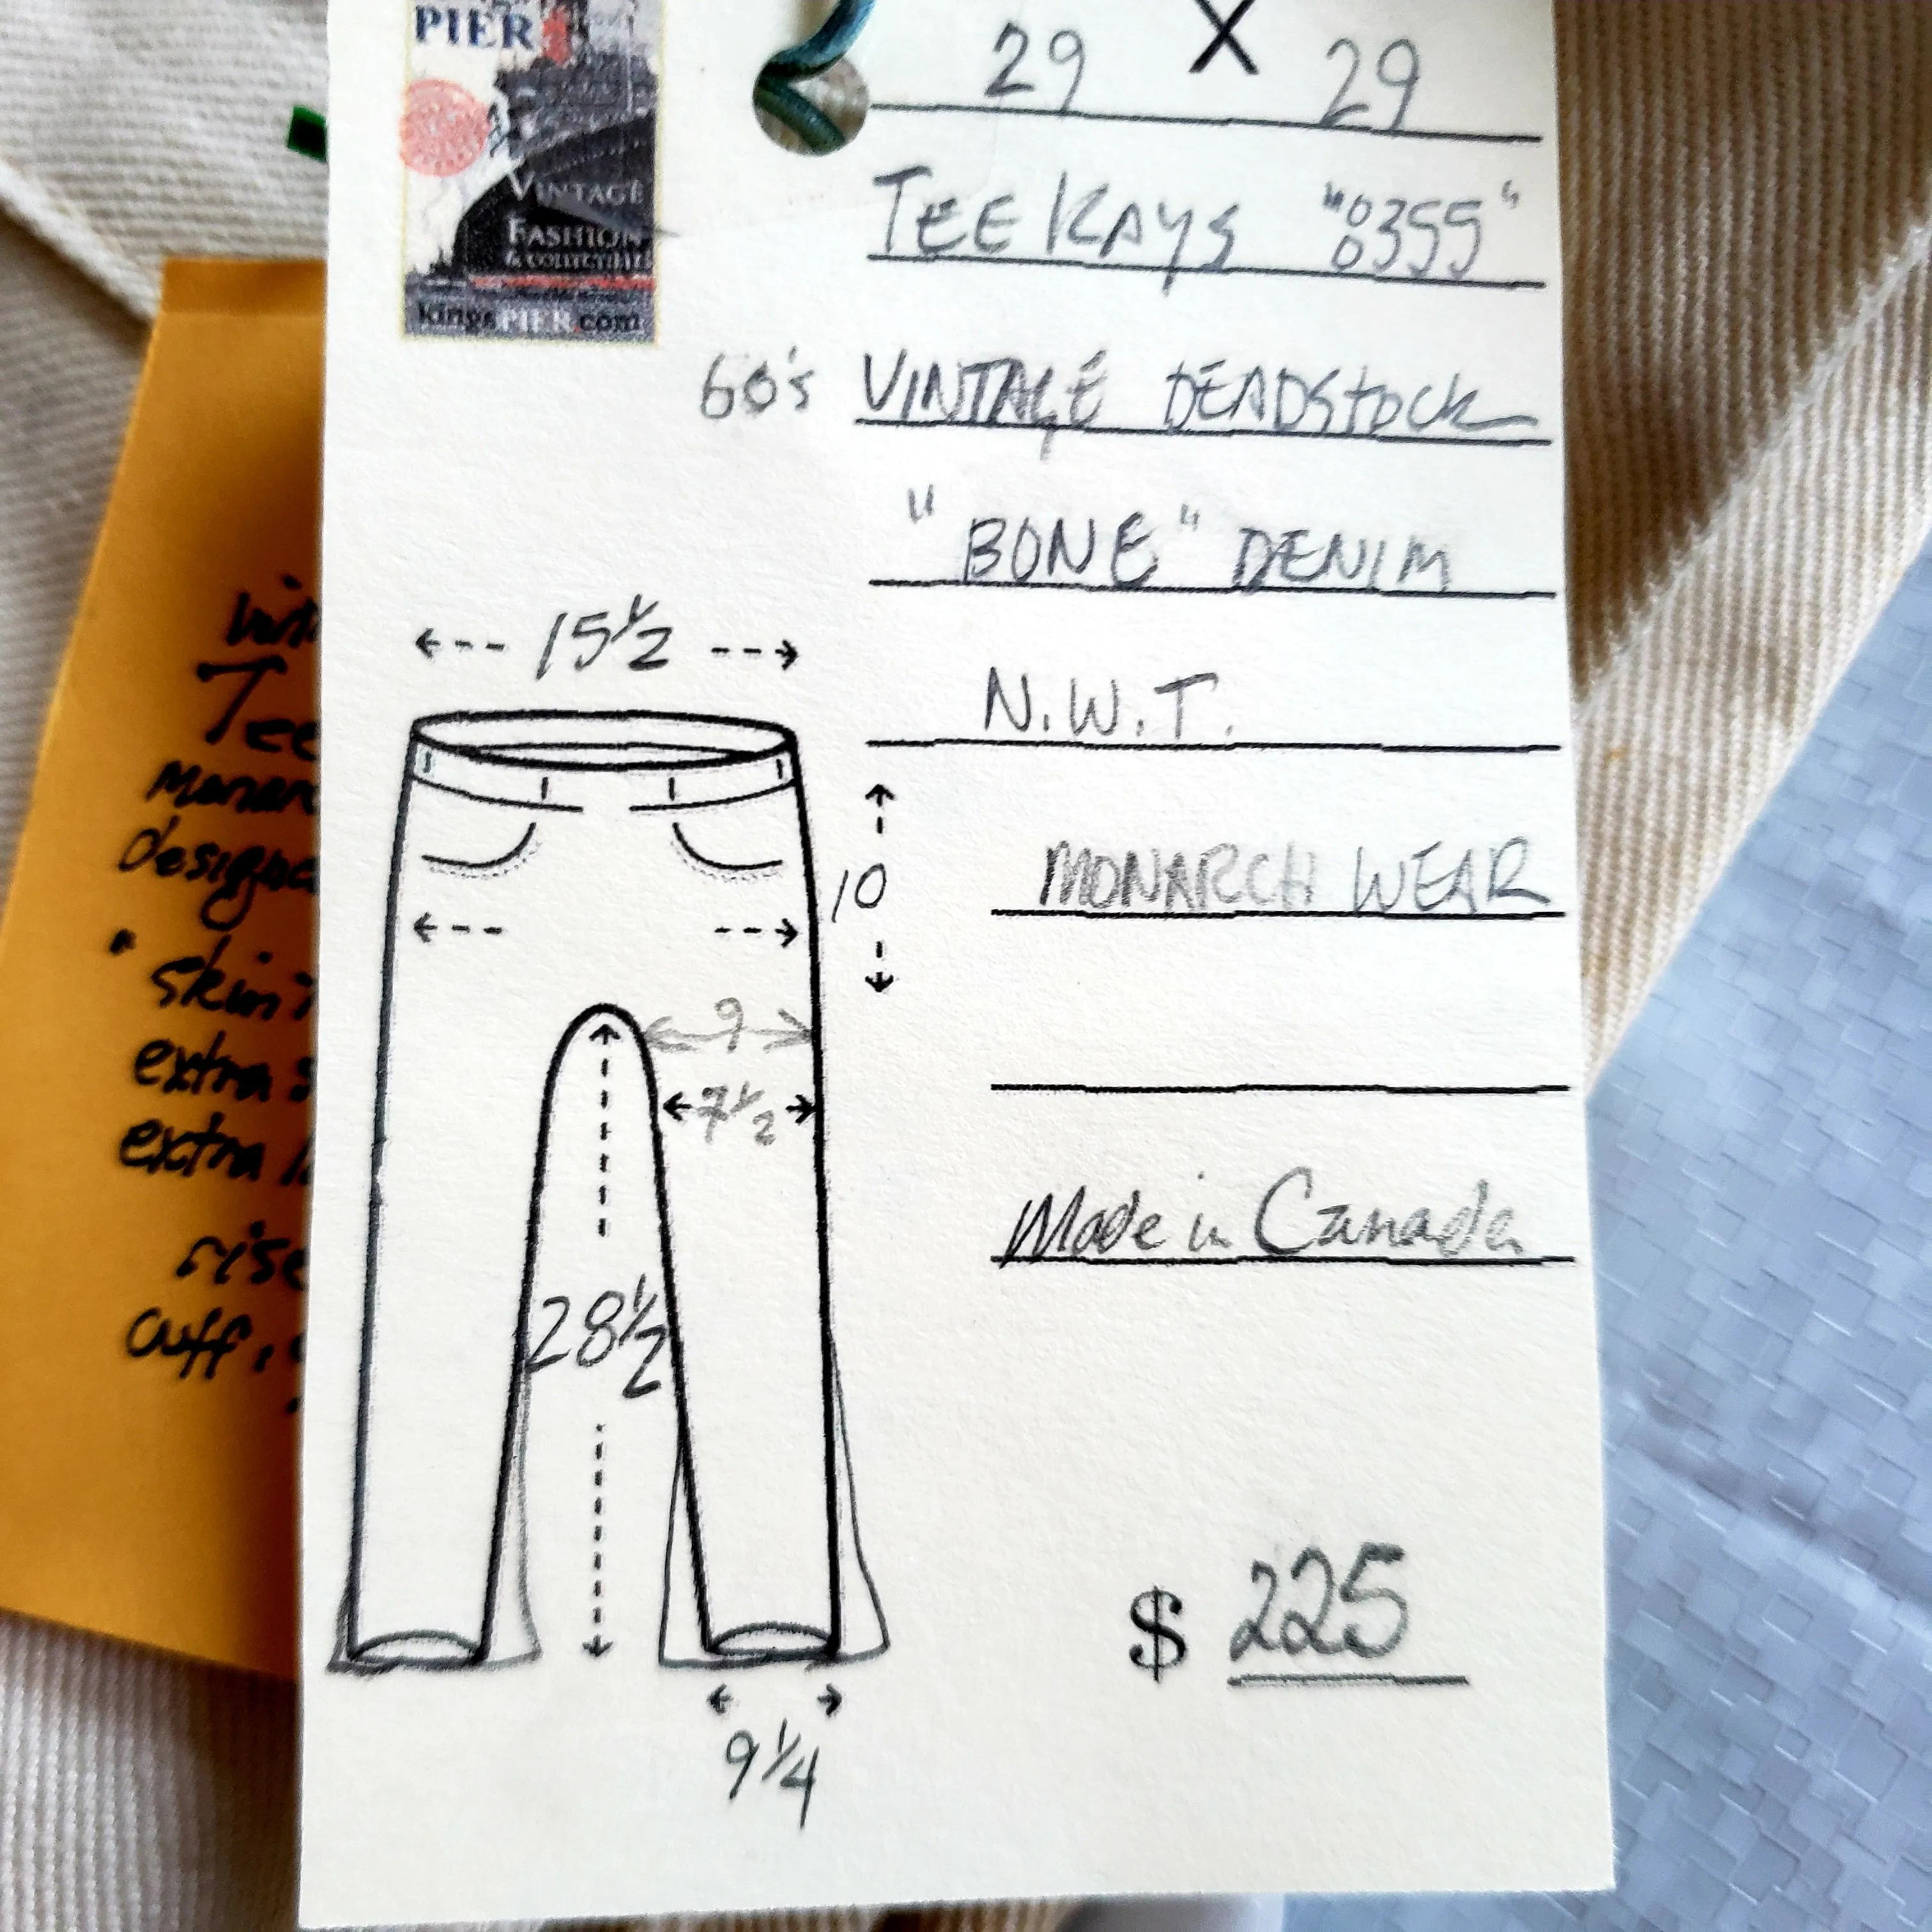 PIER
VINTAGE
FASHION
& COLLECTIBLES
kingsPIER.com
29 X 29
TEE KAYS "8355"
60's VINTAGE DEADSTOCK
"BONE" DENIM
N.W.T.
MONARCH WEAR
Made in Canada
$ 225
15 1/2
10
9
7 1/2
28 1/2
9 1/4
Tee
rise
cuff,